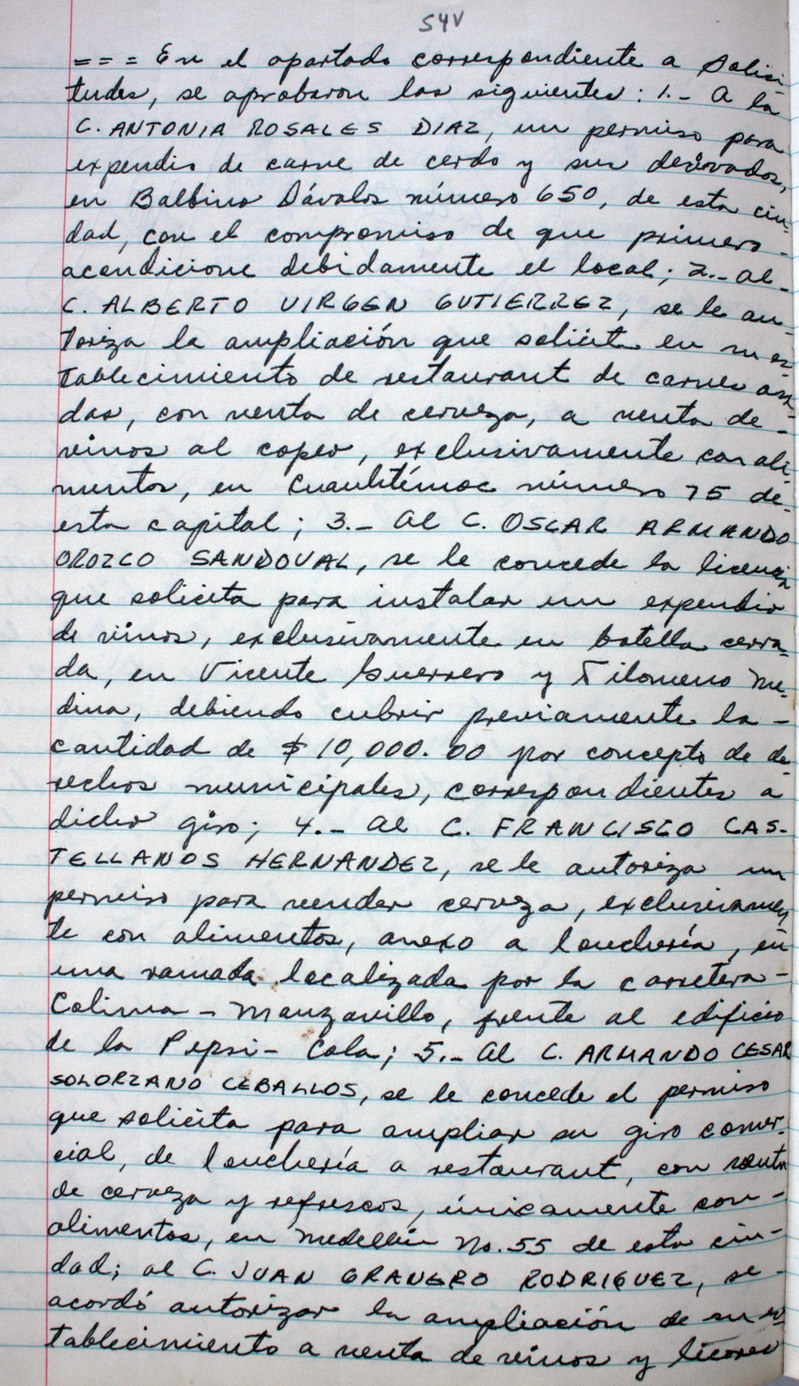 54V
= = = En el apartado correspondiente a Solici
tudes, se aprobaron las siguientes: 1.- A la
C. ANTONIA ROSALES DIAZ, un permiso para
expendio de carne de cerdo y sus derivados,
en Balbino Dávalos número 650, de esta ciu-
dad, con el compromiso de que primero -
acondicione debidamente el local; 2.- al -
C. ALBERTO VIRGEN GUTIERREZ, se le au-
toriza la ampliación que solicita en su es-
tablecimiento de restaurant de carnes asa-
das, con venta de cerveza, a venta de -
vinos al copeo, exclusivamente con ali-
mentos, en Cuauhtémoc número 75 de-
esta capital; 3.- Al C. OSCAR ARMANDO
OROZCO SANDOVAL, se le concede la licencia
que solicita para instalar un expendio
de vinos, exclusivamente en botella cerra-
da, en Vicente Guerrero y Filomeno Me-
dina, debiendo cubrir previamente la -
cantidad de $ 10,000.00 por concepto de de-
rechos municipales, correspondientes a
dicho giro; 4.- Al C. FRANCISCO CAS-
TELLANOS HERNANDEZ, se le autoriza un
permiso para vender cerveza, exclusivamen
te con alimentos, anexo a lonchería, en
una ramada localizada por la carretera -
Colima - Manzanillo, frente al edificio
de la Pepsi - Cola; 5.- Al C. ARMANDO CESAR
SOLORZANO CEBALLOS, se le concede el permiso
que solicita para ampliar su giro comer-
cial, de lonchería a restaurant, con venta
de cerveza y refrescos, únicamente con -
alimentos, en Medellín No. 55 de esta ciu-
dad; al C. JUAN GRANERO RODRIGUEZ, se -
acordó autorizar la ampliación de su es-
tablecimiento a venta de vinos y licores